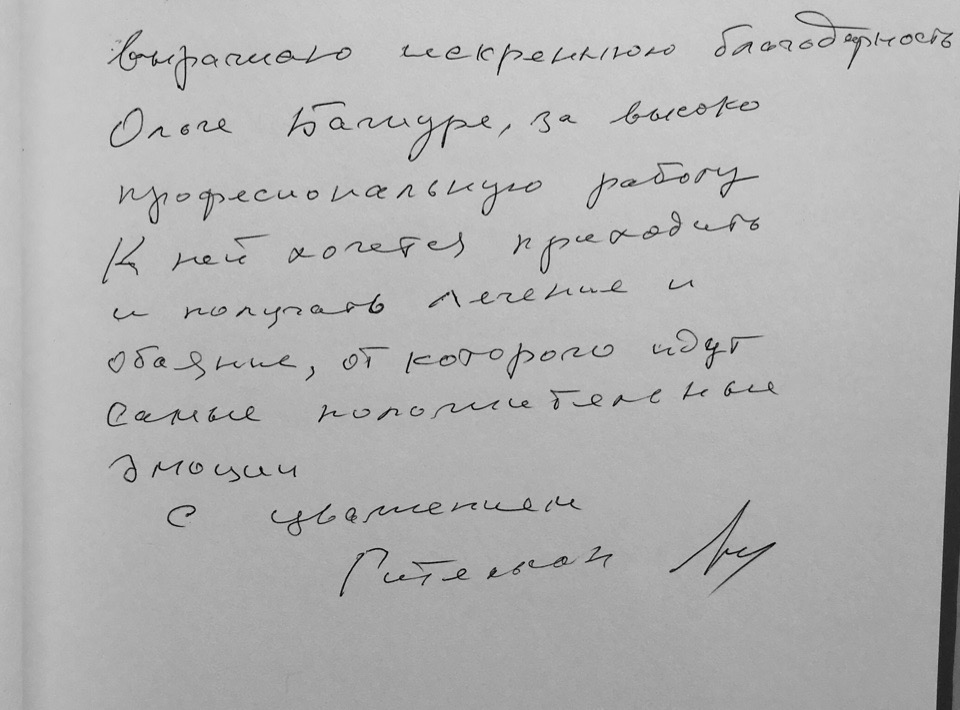 Выражаю искреннюю благодарность
Ольге Башуре, за высоко
професиональную работу
К ней хочется приходить
и получать лечение и
обаяние, от которого идут
самые положительные
эмоции
С уважением